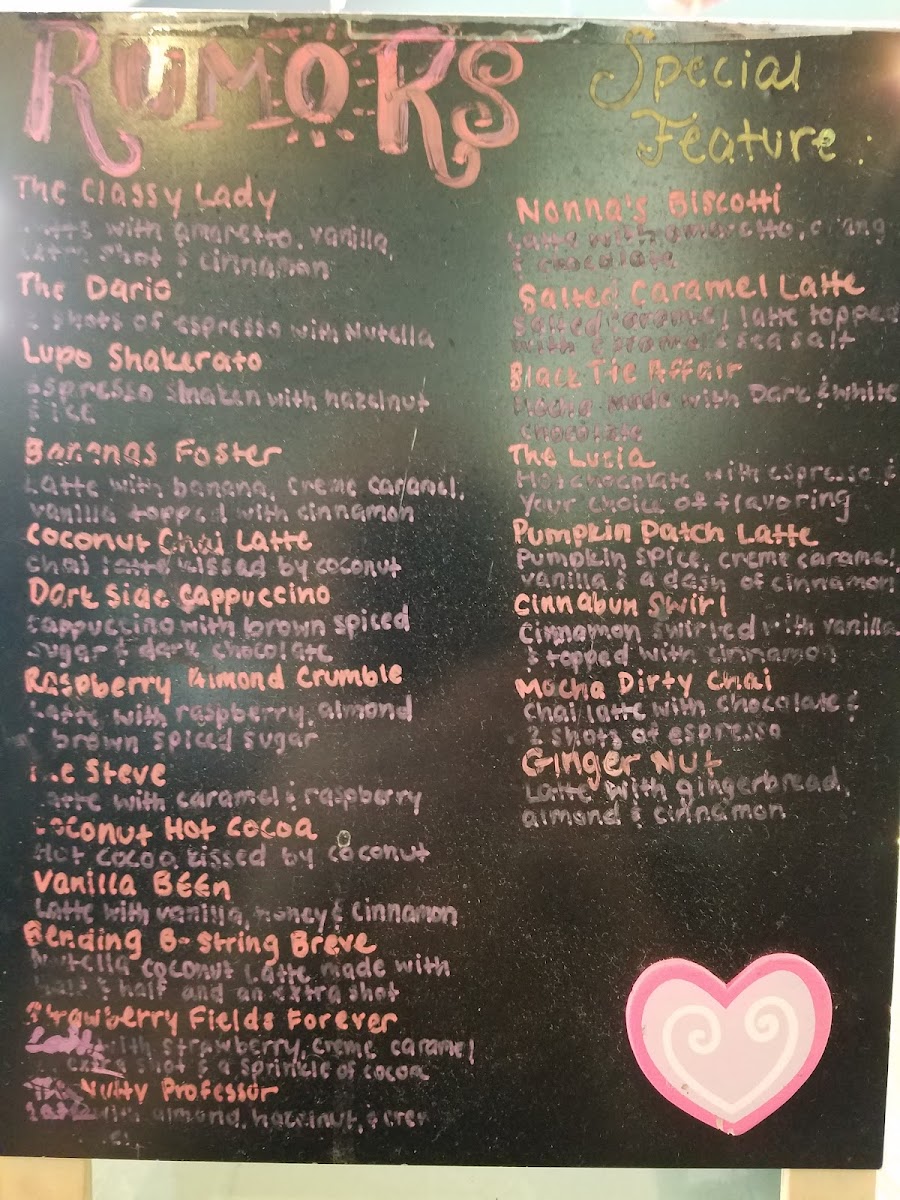 RUMORS
The Classy Lady
with amaretto, vanilla,
shot & cinnamon
The Dario
shots of espresso with Nutella
Lupo Shakerato
Espresso shaken with hazelnut
& ice
Bananas Foster
Latte with banana, creme caramel,
vanilla topped with cinnamon
Coconut Chai Latte
Chai latte kissed by coconut
Dark Side Cappuccino
Cappuccino with brown spiced
sugar & dark chocolate
Raspberry Almond Crumble
Latte with raspberry, almond
& brown spiced sugar
The Steve
Latte with caramel & raspberry
Coconut Hot Cocoa
Hot Cocoa kissed by coconut
Vanilla BÉEn
Latte with vanilla, honey & cinnamon
Bending B-String Breve
Nutella coconut Latte made with
half & half and an extra shot
Strawberry Fields Forever
Latte with strawberry, creme caramel
extra shot & a sprinkle of cocoa
The Nutty Professor
Latte with almond, hazelnut, &
Special
Feature:
Nonna's Biscotti
Latte with amaretto,
& chocolate
Salted Caramel Latte
Salted caramel latte topped
with caramel & sea salt
Black Tie Affair
Mocha made with Dark & white
chocolate
The Lucia
Hot chocolate with espresso &
your choice of flavoring
Pumpkin Patch Latte
Pumpkin spice, creme caramel,
vanilla & a dash of cinnamon
Cinnabun Swirl
Cinnamon swirled with vanilla
& topped with cinnamon
Mocha Dirty Chai
Chai latte with chocolate &
2 shots of espresso
Ginger Nut
Latte with gingerbread,
almond & cinnamon